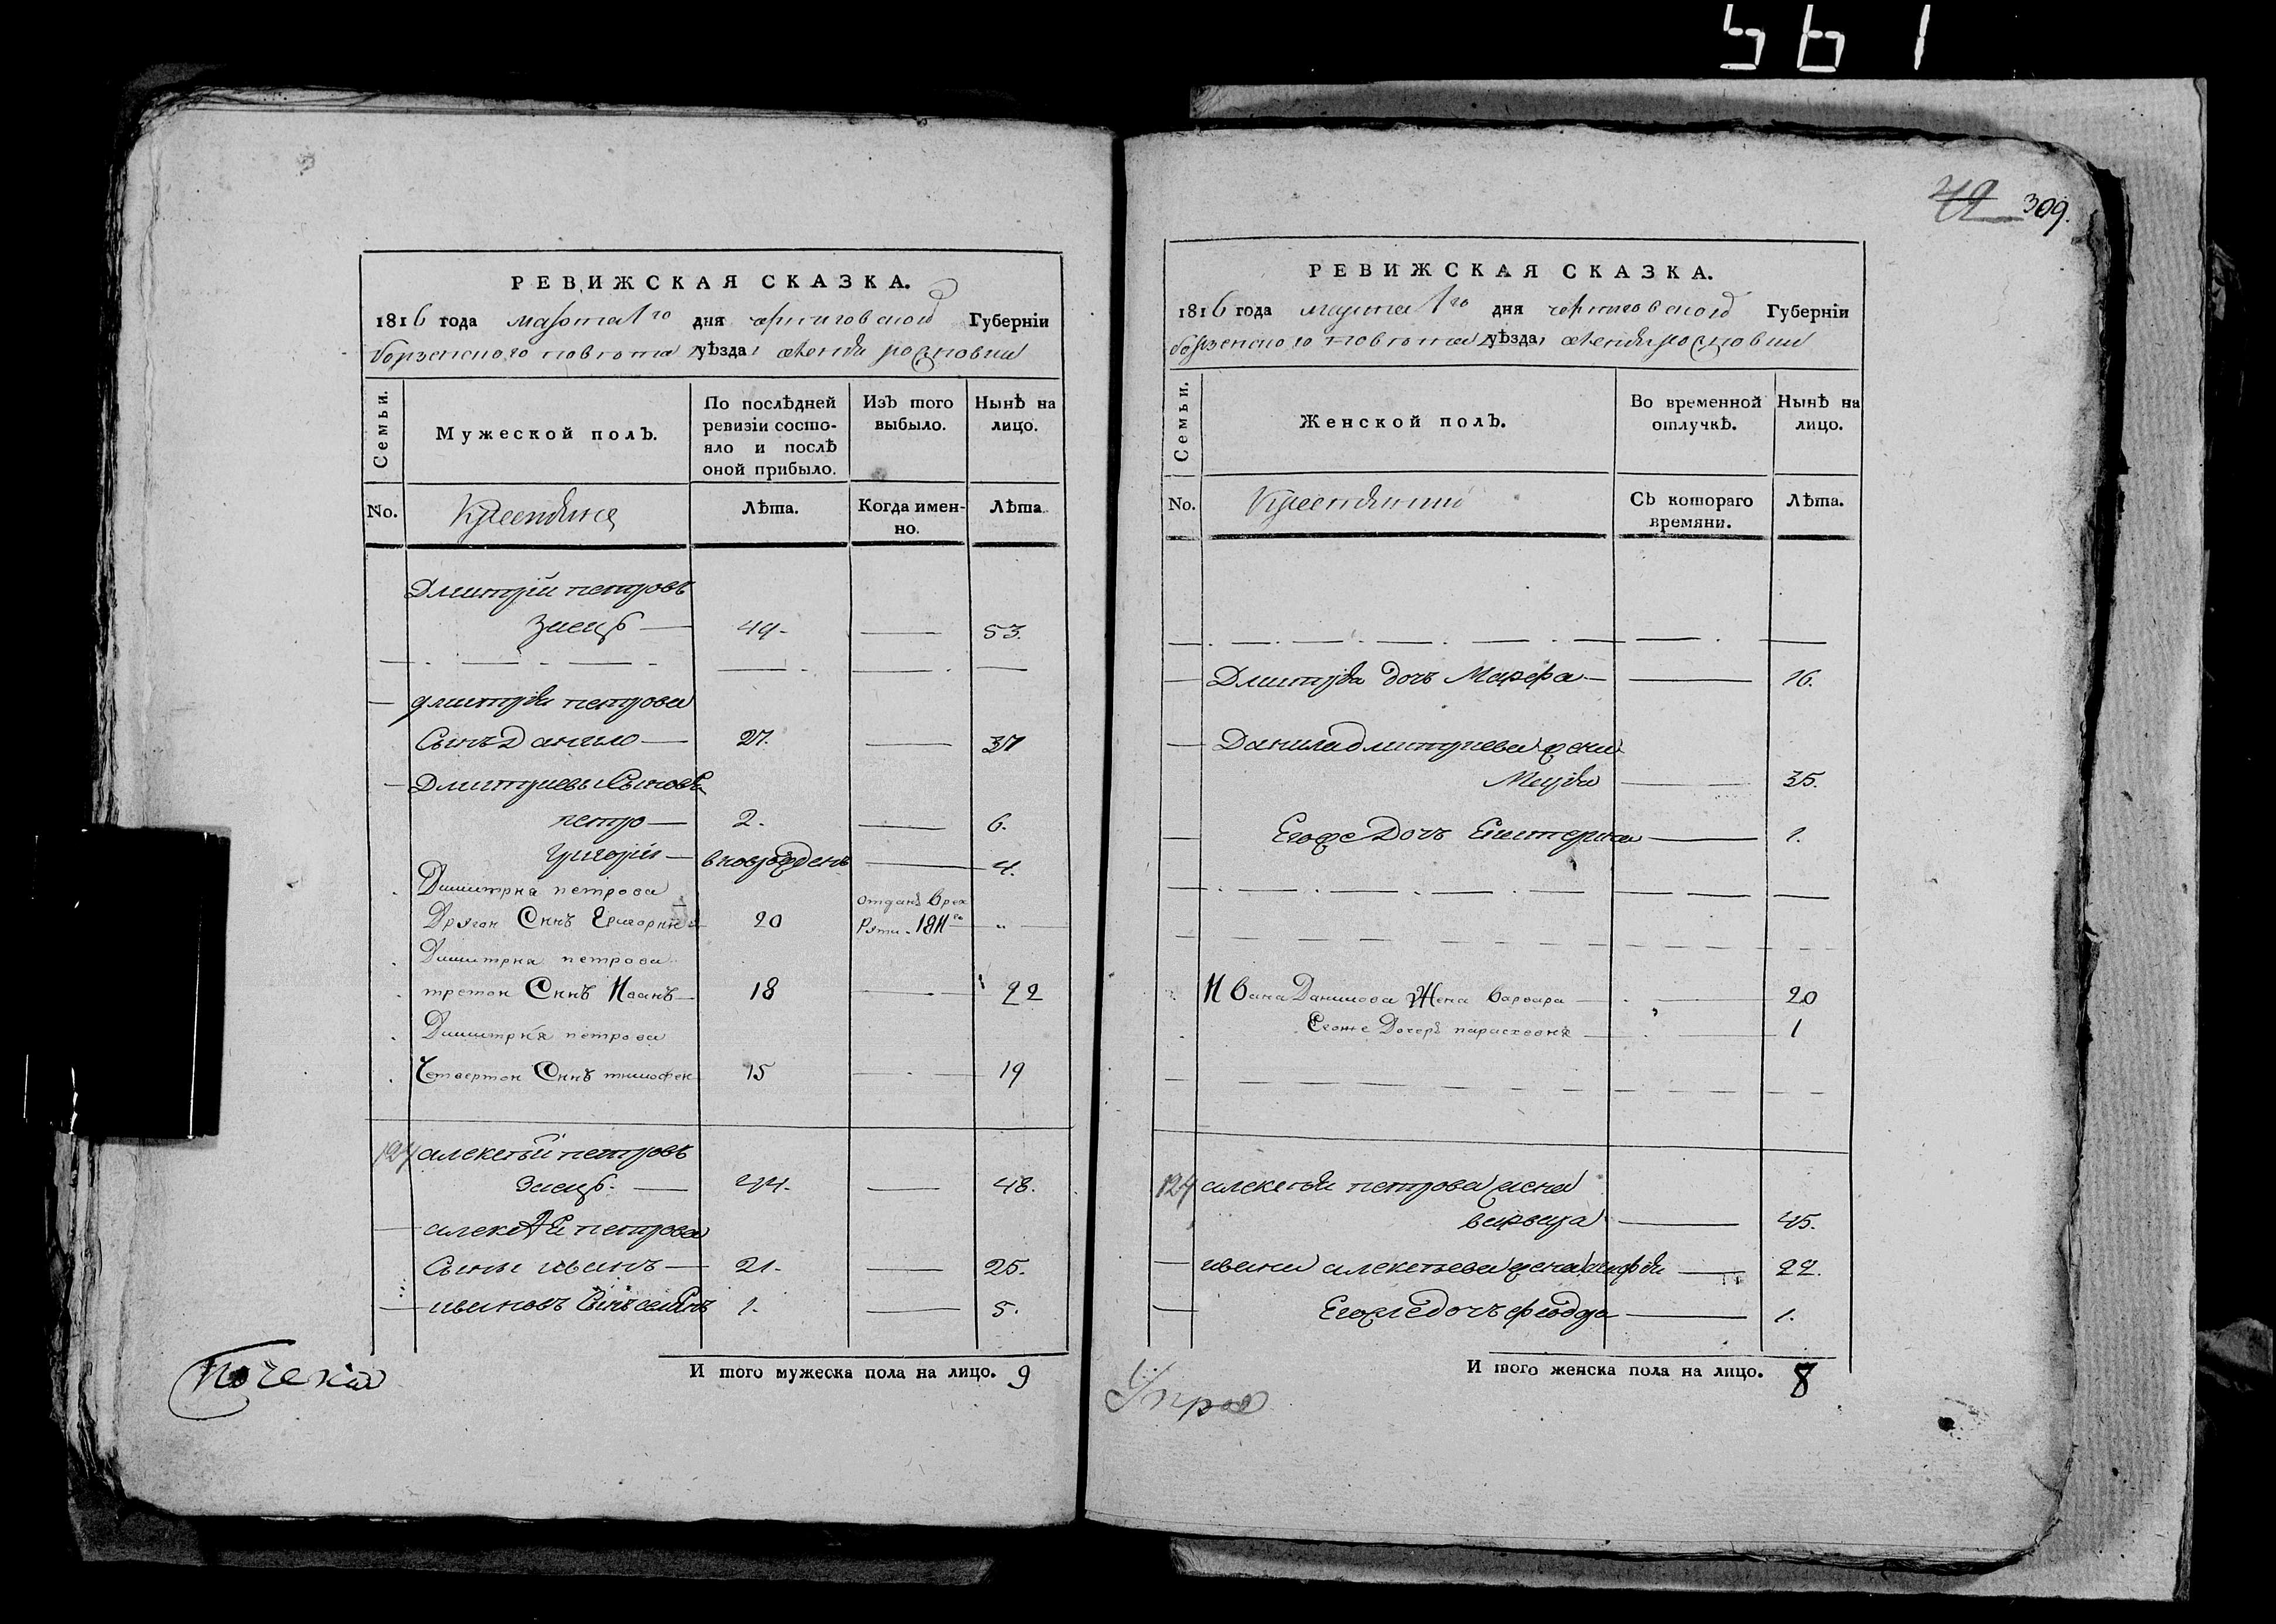 561
РЕВИЖСКАЯ СКАЗКА.
1816 года марта 1го дня черниговской Губерніи
борзенского повета уѣзда,
Семьи.
Мужеской полъ.
По послѣдней ревизіи состояло и послѣ оной прибыло.
Изъ того выбыло.
Нынѣ на лицо.
No.
Лѣта.
Когда именно.
Лѣта
Дмитрій петровъ
Заецъ 49. 53.
Дмитрія петрова
Сынъ Данило 27. 37
Дмитриевы Сыновя
петро 2. 6.
григорій 4.
Димитрия петрова
Другои Синъ Григорий 20 отданъ врек руты 1811го
Димитрия петрова
третои Синъ Иванъ 18 22
Димитрия петрова
Четвертои Синъ тимофеи 15 19
124 алексей петровъ
Заецъ. 44. 48.
алексея петрова
Сынъ иванъ 21. 25.
ивановъ Сынъ 1. 5.
И того мужеска пола на лицо. 9
309.
РЕВИЖСКАЯ СКАЗКА.
1816 года марта 1го дня черниговской Губерніи
борзенского повета уѣзда,
Семьи.
Женской полъ.
Во временной отлучкѣ.
Нынѣ на лицо.
No.
Съ котораго времяни.
Лѣта.
Дмитрия дочъ Марфа 16.
Данила дмитриева жена
Маря 35.
Егоже Дочъ Екатерина 1.
Ивана Данилова Жена Варвара 20
Егоже Дочеръ парасковия 1
124 алексея петрова жена
варвара 45.
ивана алексеева жена 22.
Егоже дочъ 1.
И того женска пола на лицо. 8